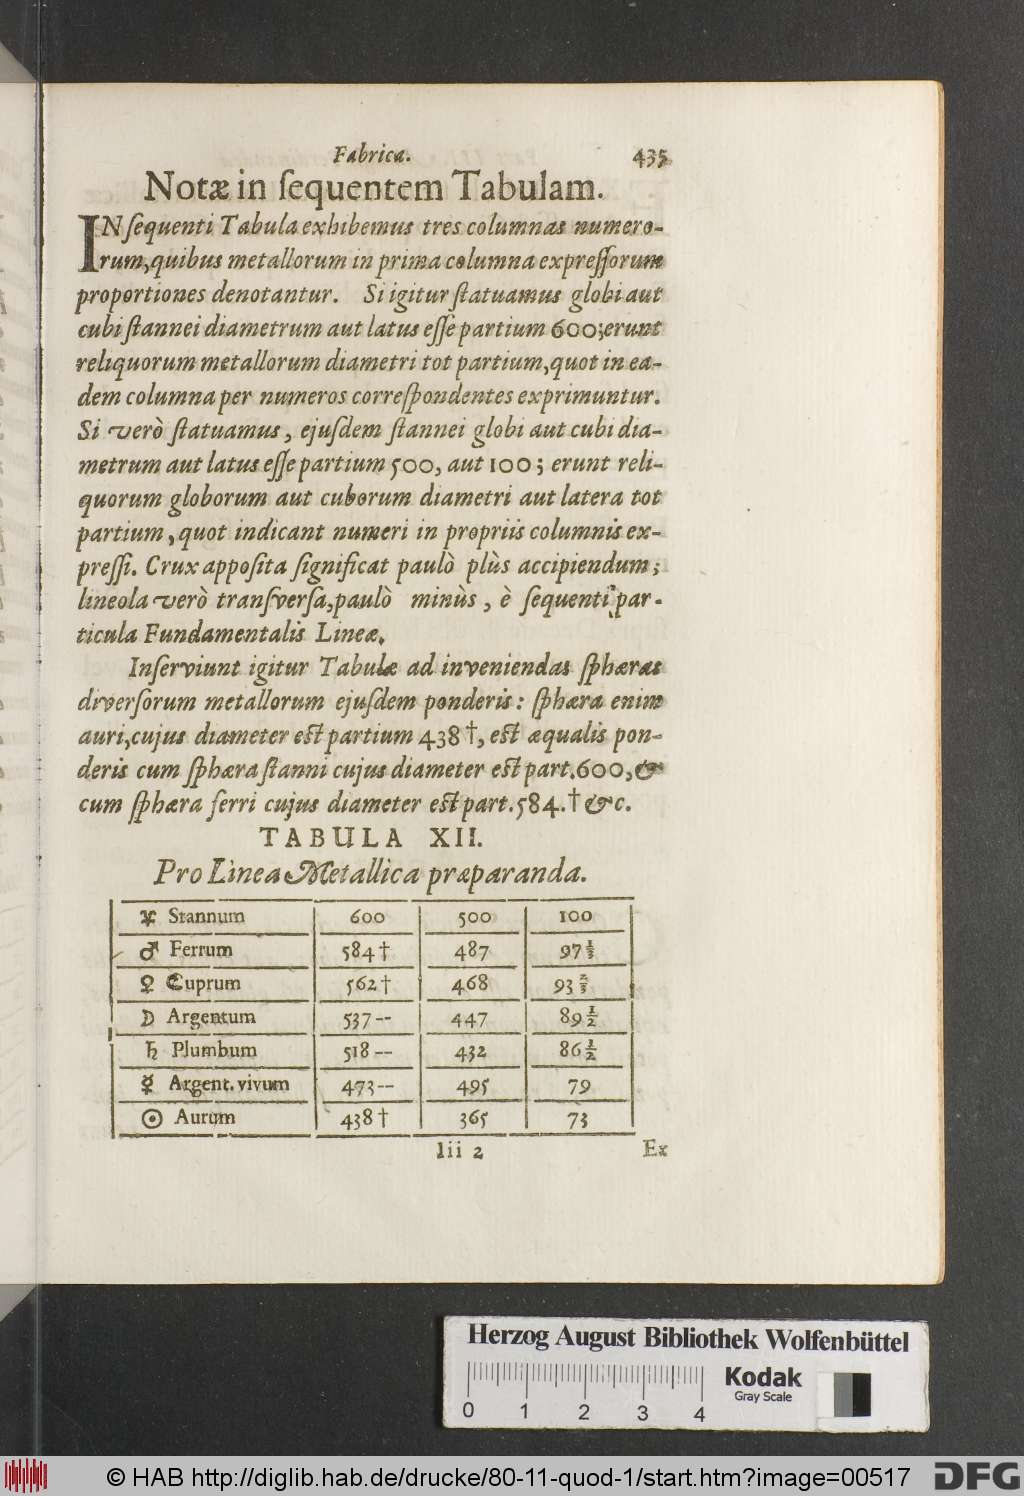 Fabrica. 435
Notæ in ſequentem Tabulam.
IN ſequenti Tabula exhibemus tres columnas numero-
rum, quibus metallorum in prima columna expreſſorum
proportiones denotantur. Si igitur ſtatuamus globi aut
cubi ſtannei diametrum aut latus eſſe partium 600; erunt
reliquorum metallorum diametri tot partium, quot in ea-
dem columna per numeros correſpondentes exprimuntur.
Si verò ſtatuamus, ejuſdem ſtannei globi aut cubi dia-
metrum aut latus eſſe partium 500, aut 100; erunt reli-
quorum globorum aut cuborum diametri aut latera tot
partium, quot indicant numeri in propriis columnis ex-
preſſi. Crux appoſita ſignificat paulò plùs accipiendum;
lineola verò tranſverſa, paulò minùs, è ſequenti par-
ticula Fundamentalis Lineæ.
Inſerviunt igitur Tabulæ ad inveniendas ſphæras
diverſorum metallorum ejuſdem ponderis: ſphæra enim
auri, cujus diameter eſt partium 438†, eſt æqualis pon-
deris cum ſphæra ſtanni cujus diameter eſt part. 600, &
cum ſphæra ferri cujus diameter eſt part. 584. † &c.
TABULA XII.
Pro Linea Metallica præparanda.
♃ Stannum 600 500 100
♂ Ferrum 584† 487 97 1/3
♀ Cuprum 562† 468 93 2/3
☽ Argentum 537-- 447 89 1/2
♄ Plumbum 518-- 432 86 1/2
☿ Argent. vivum 473-- 495 79
☉ Aurum 438† 365 73
Iii 2 Ex
Herzog August Bibliothek Wolfenbüttel
Kodak
Gray Scale
0 1 2 3 4
© HAB http://diglib.hab.de/drucke/80-11-quod-1/start.htm?image=00517
DFG